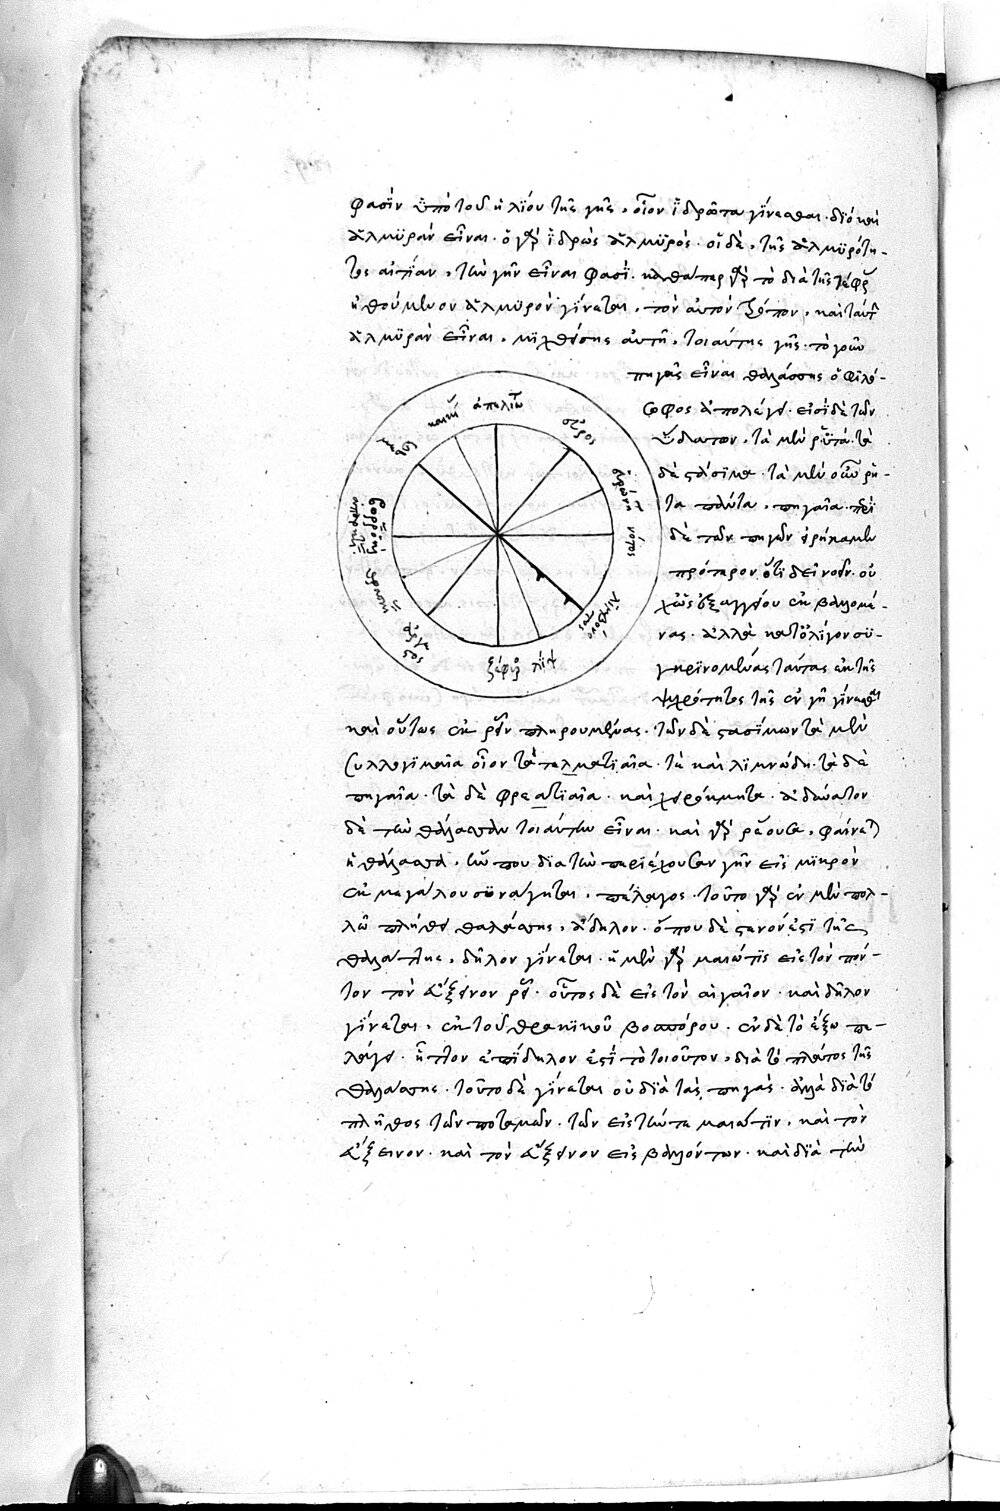 φασὶν ὑπὸ τοῦ ἡλίου τῆς γῆς, οἷον ἱδρῶτα γίνεσθαι· διὸ καὶ
ἁλμυρὰν εἶναι· ὁ γὰρ ἱδρὼς ἁλμυρός· οἱ δὲ, τῆς ἁλμυρότη-
τος αἰτίαν, τὴν γῆν εἶναι φασί· καθάπερ γὰρ τὸ διὰ τῆς τέφρας
ἠθούμενον ἁλμυρὸν γίνεται, τὸν αὐτὸν τρόπον, καὶ ταύτην
ἁλμυρὰν εἶναι, μιχθείσης αὐτῇ, τοιαύτης γῆς· τὸ γοῦν
πηγὰς εἶναι θαλάσσης ὁ φιλό-
σοφος ἀπολέγει· εἰσὶ δὲ τῶν
ὑδάτων, τὰ μὲν ῥυτά· τὰ
δὲ στάσιμα· τὰ μὲν οὖν ῥυ-
τὰ πάντα, πηγαῖα· περὶ
δὲ τῶν πηγῶν εἰρήκαμεν
πρότερον ὅτι δεῖ νοεῖν· οὐ
χ' ὡς ἐξ ἀγγείου ἐκβαλλομέ-
νας· ἀλλὰ κατ' ὀλίγον συ-
γκρινομένας ταύτας ἐκ τῆς
ψυχρότητος τῆς ἐν γῇ γίνεσθαι
καὶ οὕτως ἐκρεῖν πληρουμένας· τῶν δὲ στασίμων τὰ μὲν
συλλογιμαῖα οἷον τὰ τελματιαῖα· τὰ καὶ λιμνώδη· τὰ δὲ
πηγαῖα· τὰ δὲ φρεατιαῖα· καὶ χειρόκμητα· ἀδύνατον
δὲ τὴν θάλασσαν τοιαύτην εἶναι· καὶ γὰρ ῥέουσα, φαίνεται
ἡ θάλασσα, ὅπου διὰ τὴν περιέχουσαν γῆν εἰς μικρὸν
ἐκ μεγάλου συνάγηται, πέλαγος· τοῦτο γὰρ ἐν μὲν πολ-
λῷ πλήθει θαλάσσης, ἄδηλον· ὅπου δὲ στενόν ἐστι τῆς
θαλάττης, δῆλον γίνεται· ἡ μὲν γὰρ μαιῶτις εἰς τὸν πόν-
τον τὸν εὔξεινον ῥεῖ· οὗτος δὲ εἰς τὸν αἰγαῖον· καὶ δῆλον
γίνεται, ἐκ τοῦ θρακικοῦ βοσπόρου· ἐν δὲ τὸ ἔξω πε-
λάγει· ἧττον ἐπίδηλον ἐστὶ τὸ τοιοῦτον, διὰ τὸ πλάτος τῆς
θαλάσσης· τοῦτο δὲ γίνεται οὐ διὰ τὰς πηγάς· ἀλλὰ διὰ τὸ
πλῆθος τῶν ποταμῶν· τῶν εἰς τήν τε μαιῶτιν, καὶ τὸν
εὔξεινον· καὶ τὸν εὔξεινον εἰσβαλόντων· καὶ διὰ τὴν
ἀπηλιώτης
εὖρος
νότος
ζέφυρος
ἀργέστης
βορρᾶς